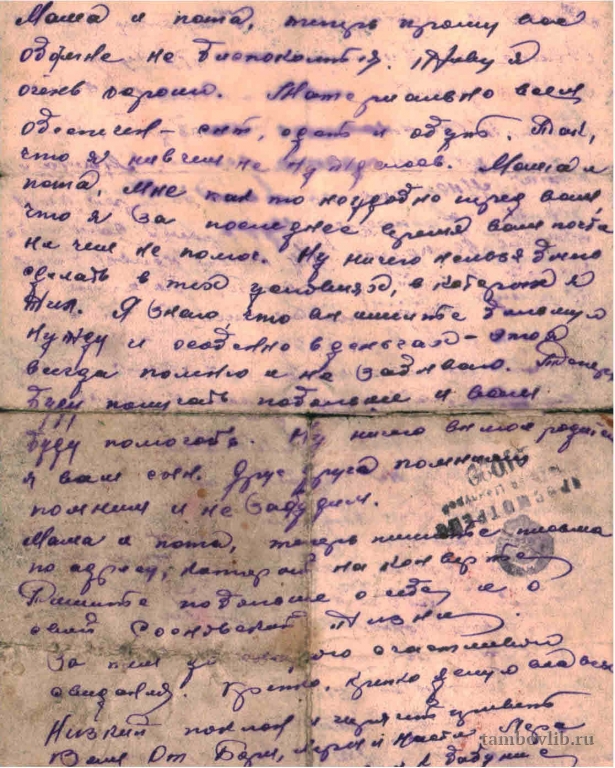 Мама и папа, теперь прошу вас
обо мне не беспокойтесь. Живу я
очень хорошо. Материально всем
обеспечен – сыт, одет и обут. Так,
что я ни в чем не нуждаюсь. Мама и
папа, мне как то неудобно перед вами
что я за последнее время вам почти
на чем не помог. Ну ничего нельзя было
сделать в тех условиях, в которых я
жил. Я знаю, что вы имеете большую
нужду и особенно в деньгах – это я
всегда помню и не забываю. Теперь
буду получать побольше и вам
буду помогать. Ну ничего вы мои
я вам сын. Друг друга
помним и не забудем.
Мама и папа, теперь пишите письма
по адресу, который на конверте
Пишите побольше о себе и о
своей Сосновской жизни.
За тем до счастливого
свидания. Крепко, крепко целую
Низкий поклон и привет
Вам от Бори, и Насти
ПРОСМОТРЕНО
tambovlib.ru